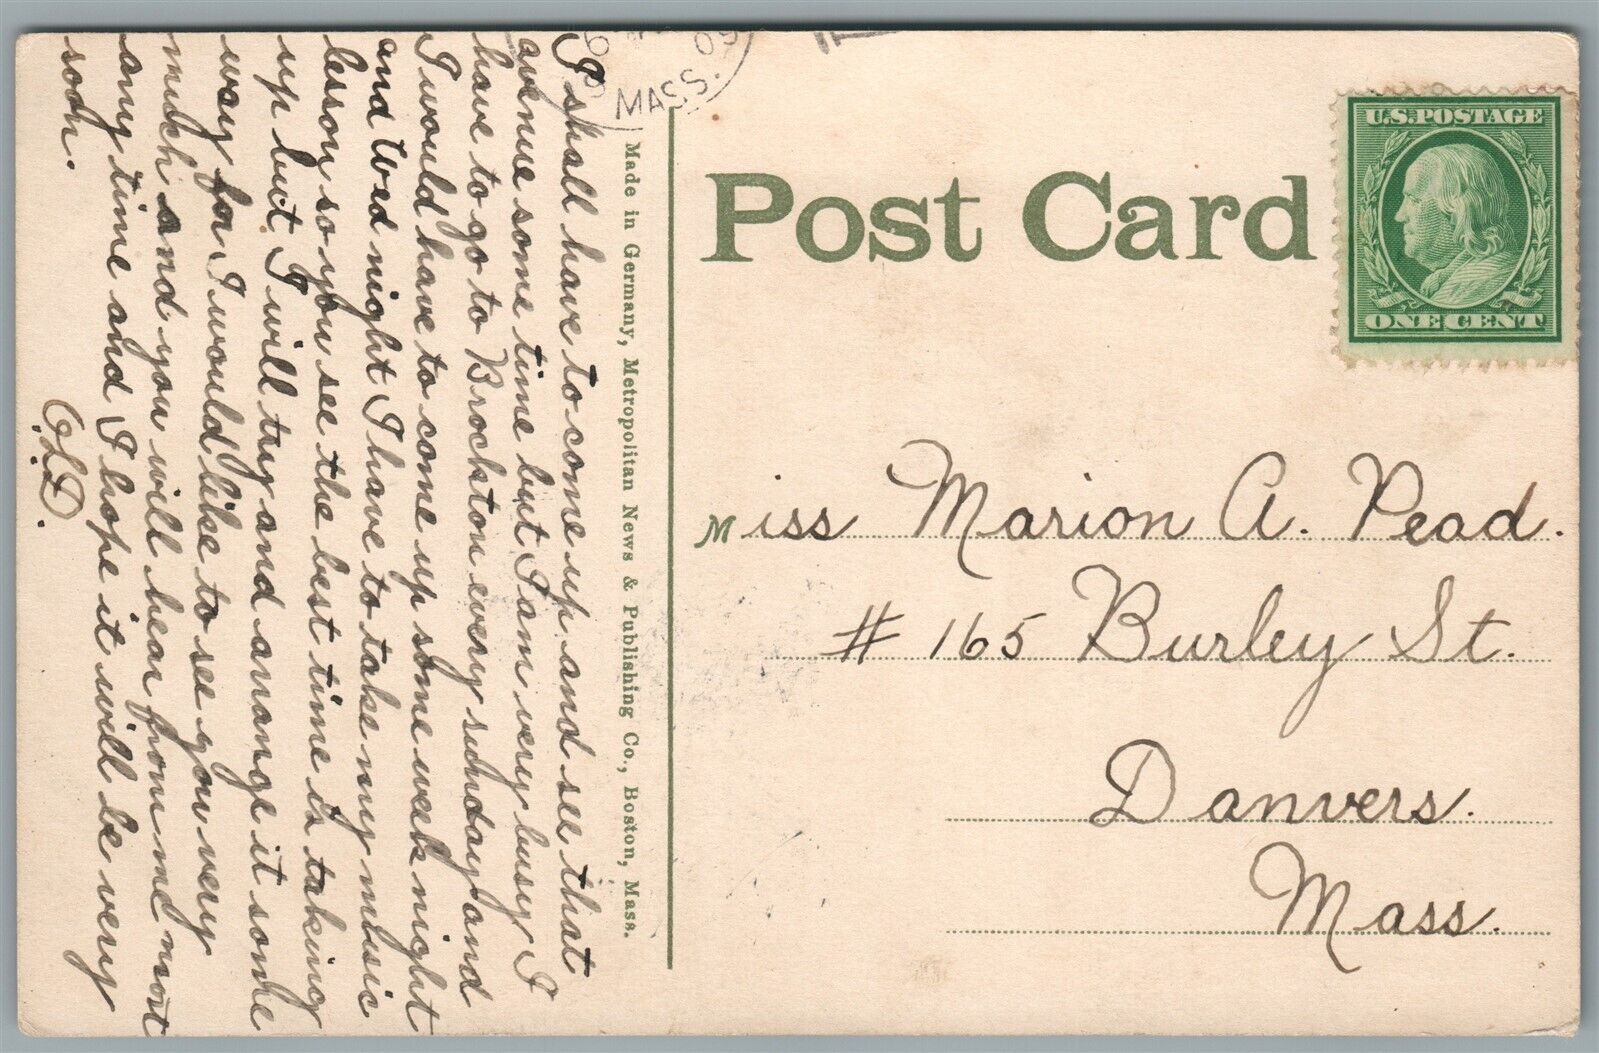 I shall have to come up and see that
avenue some time but I am very busy I
have to go to Brockton every sunday and
I would have to come up some week night
and Wed night I have to take my music
lesson so you see the best time is taking
up but I will try and arrange it some
way for I would like to see you very
much and you will hear from me most
any time and I hope it will be very
soon.
C.L.D.
MASS.
09
Made in Germany, Metropolitan News & Publishing Co., Boston, Mass.
Post Card
U.S. POSTAGE
ONE CENT
Miss Marion A. Pead.
# 165 Burley St.
Danvers.
Mass.